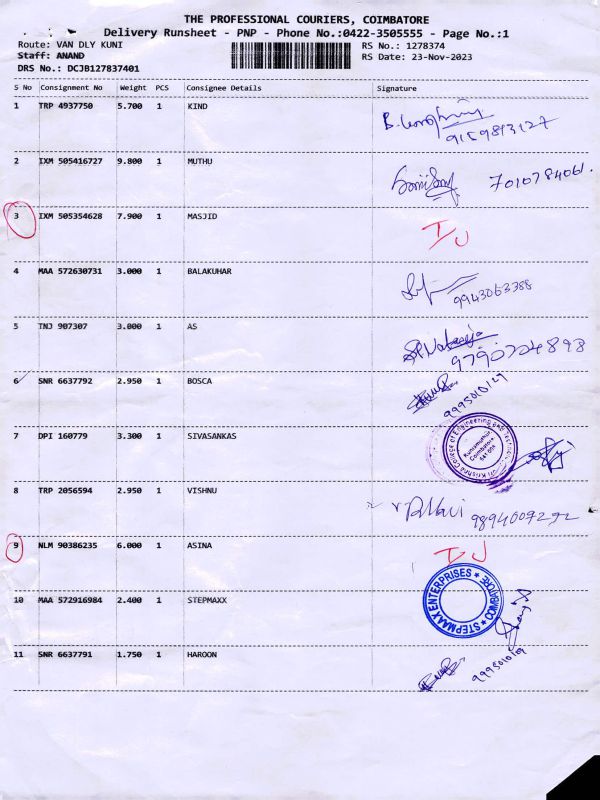 THE PROFESSIONAL COURIERS, COIMBATORE
Delivery Runsheet - PNP - Phone No.:0422-3505555 - Page No.:1
Route: VAN DLY KUNI
RS No.: 1278374
Staff: ANAND
RS Date: 23-Nov-2023
DRS No.: DCJB127837401
S No Consignment No Weight PCS Consignee Details Signature
1 TRP 4937750 5.700 1 KIND
9159843127
2 IXM 505416727 9.800 1 MUTHU
7010784061.
3 IXM 505354628 7.900 1 MASJID
4 MAA 572630731 3.000 1 BALAKUHAR
9943063388
5 TNJ 907307 3.000 1 AS
9790724898
6 SNR 6637792 2.950 1 BOSCA
9995010129
7 DPI 160779 3.300 1 SIVASANKAS
Krishna College of Engineering and
Kuniamuthur
Coimbatore
641 008
8 TRP 2056594 2.950 1 VISHNU
9894009292
9 NLM 90386235 6.000 1 ASINA
10 MAA 572916984 2.400 1 STEPMAXX
STEPMAAX ENTERPRISES
11 SNR 6637791 1.750 1 HAROON